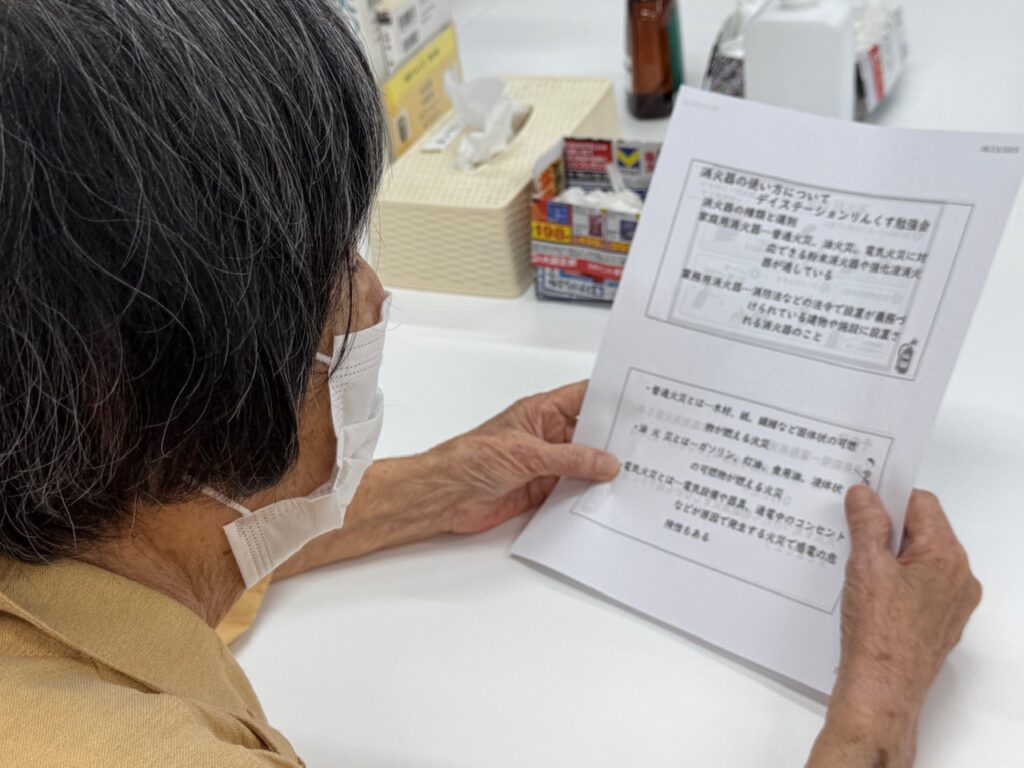 08/23/2025
消火器の使い方について
デイステーションりんくす勉強会
消火器の種類と選別
家庭用消火器…普通火災、油火災、電気火災に対
応できる粉末消火器や強化液消火
器が適している
業務用消火器…消防法などの法令で設置が義務づ
けられている建物や施設に設置さ
れる消火器のこと
・普通火災とは…木材、紙、繊維など固体状の可燃
物が燃える火災
・油 火 災とは…ガソリン、灯油、食用油、液体状
の可燃物が燃える火災
電気火災とは…電気設備や器具、通電中のコンセント
などが原因で発生する火災で感電の危
険性もある
198